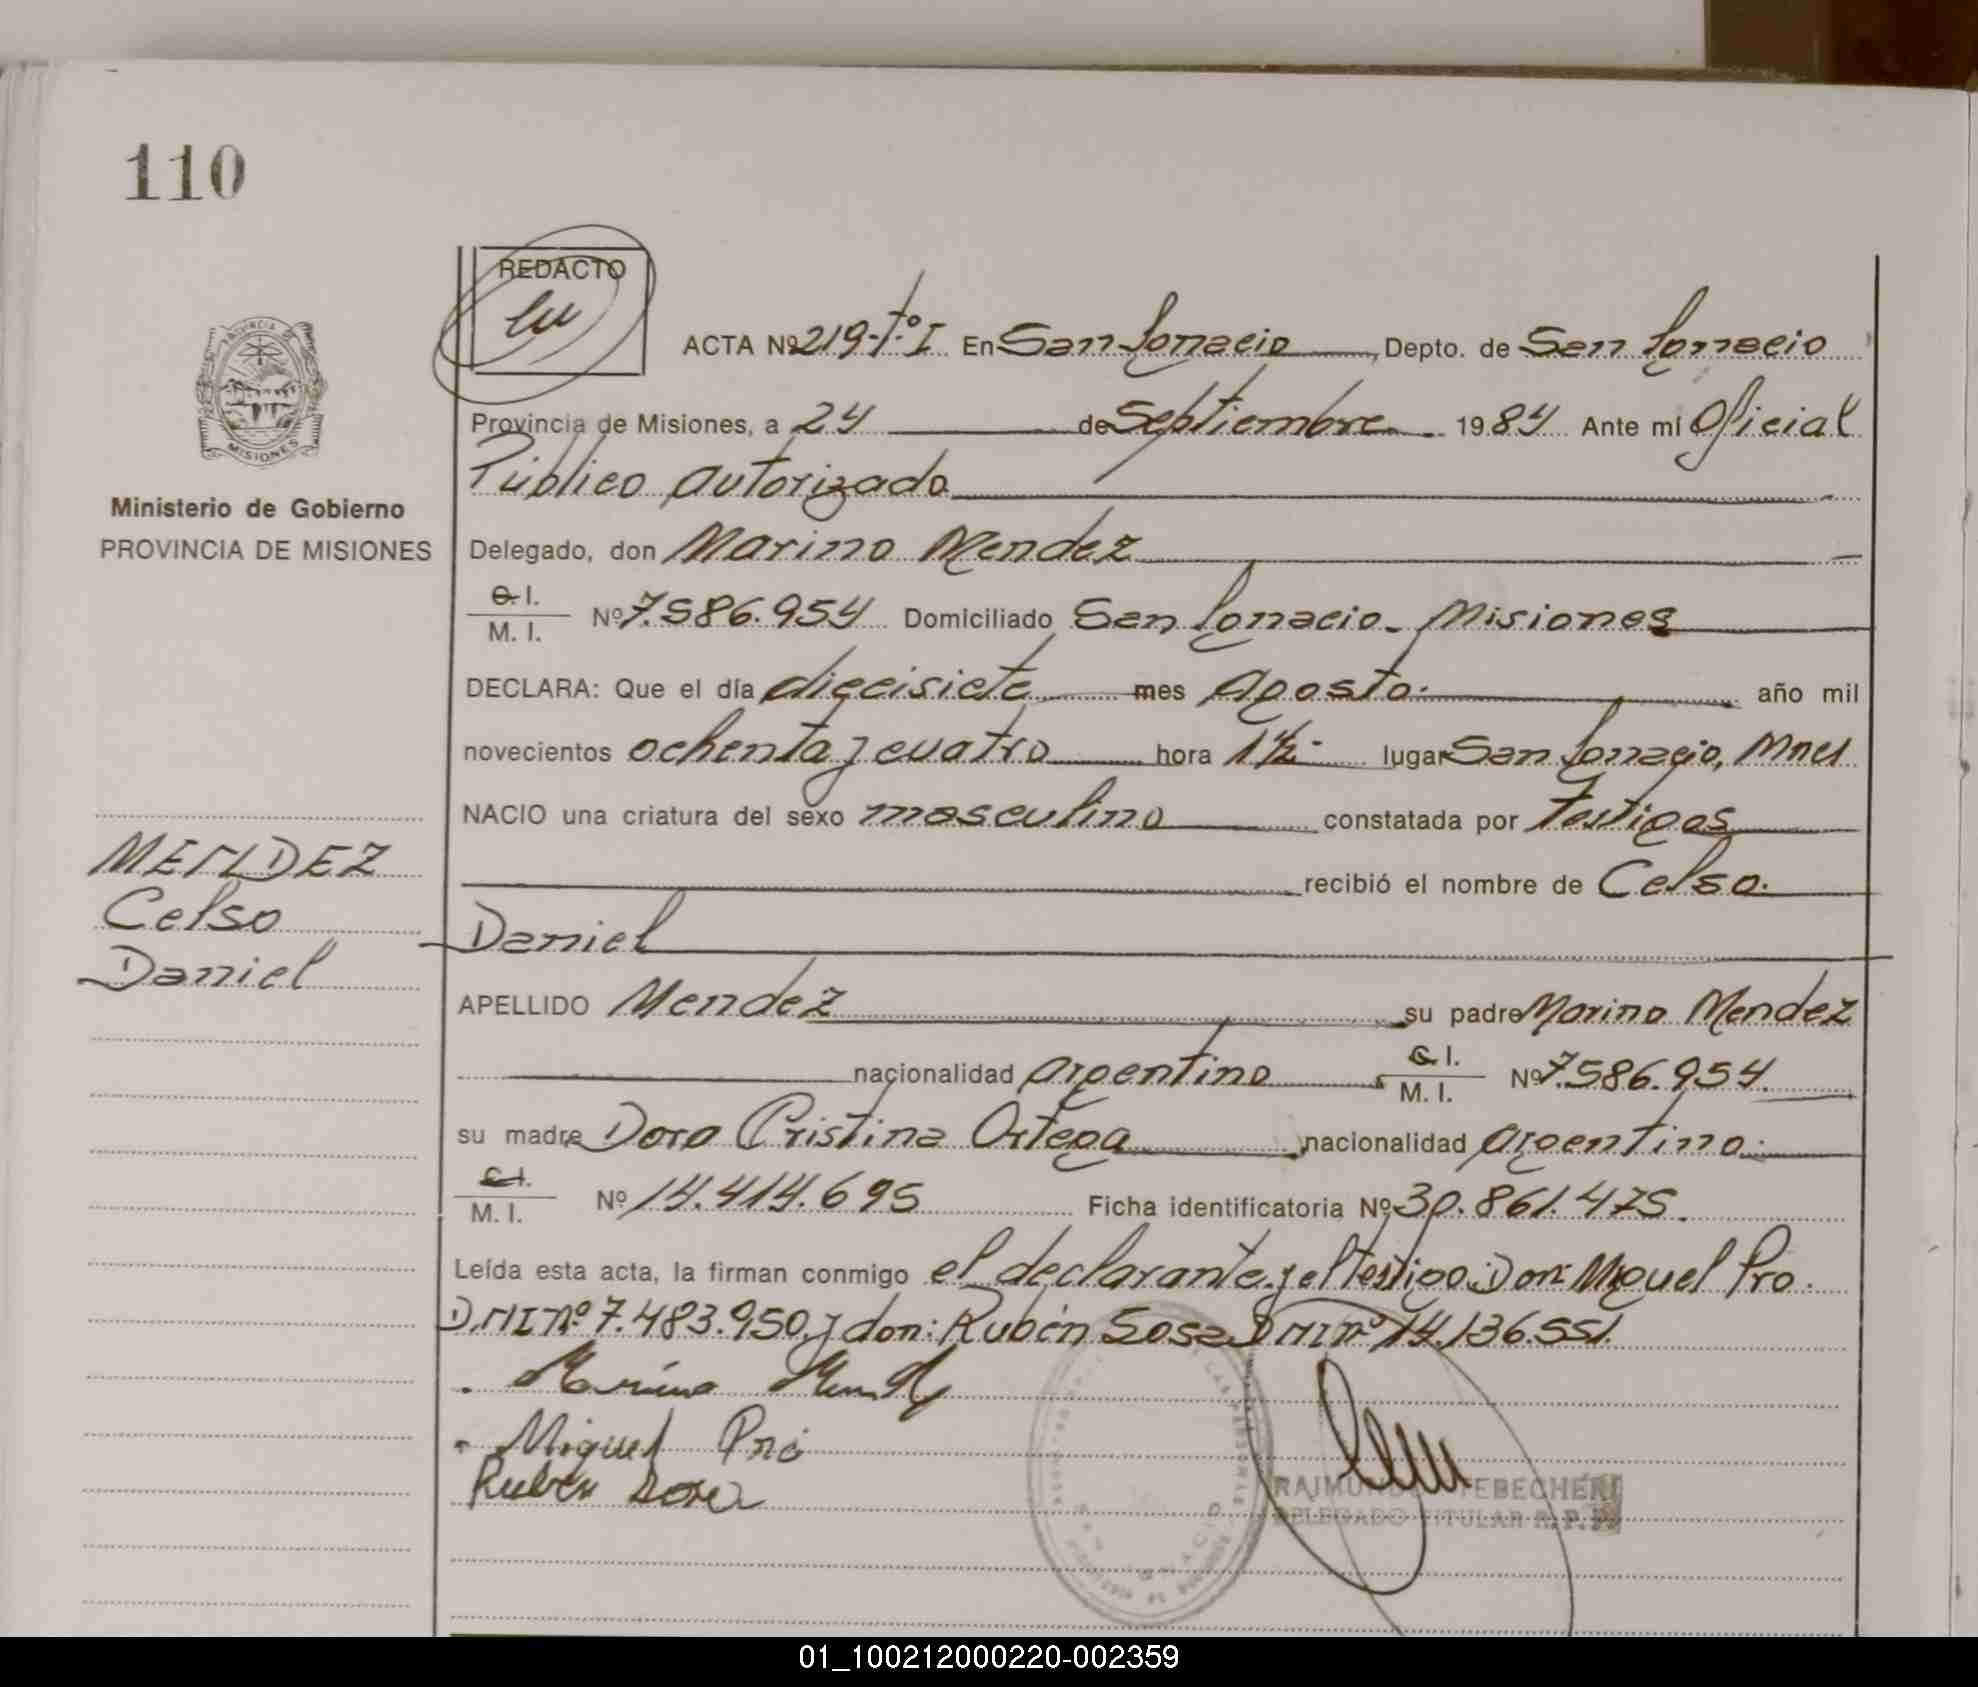 110
REDACTO
ACTA Nº 219-Tº I En San Ignacio, Depto. de San Ignacio
Provincia de Misiones, a 24 de Septiembre 1984 Ante mí Oficial
Público autorizado
PROVINCIA DE
MISIONES
Ministerio de Gobierno
PROVINCIA DE MISIONES
Delegado, don Marino Mendez
C. I.
M. I. Nº 7.586.954 Domiciliado San Ignacio. Misiones
DECLARA: Que el día diecisiete mes Agosto. año mil
novecientos ochenta y cuatro hora 1½ lugar San Ignacio, Mnes
NACIO una criatura del sexo masculino constatada por Testigos
recibió el nombre de Celso.
Daniel
MENDEZ
Celso
Daniel
APELLIDO Mendez su padre Marino Mendez
nacionalidad argentino C. I.
M. I. Nº 7.586.954.
su madre Dora Cristina Ortega, nacionalidad argentina.
C. I.
M. I. Nº 14.414.695 Ficha identificatoria Nº 30.861.475.
Leída esta acta, la firman conmigo el declarante y el testigo Don: Miguel Pro.
D.N.I nº 7.483.950, y don: Rubén Sosa D N I nº 14.136.551.
Marino
Miguel
Ruben Sosa
RAIMUNDO TEBECHERI
DELEGADO TITULAR R.P.P.
SAN IGNACIO
01_100212000220-002359